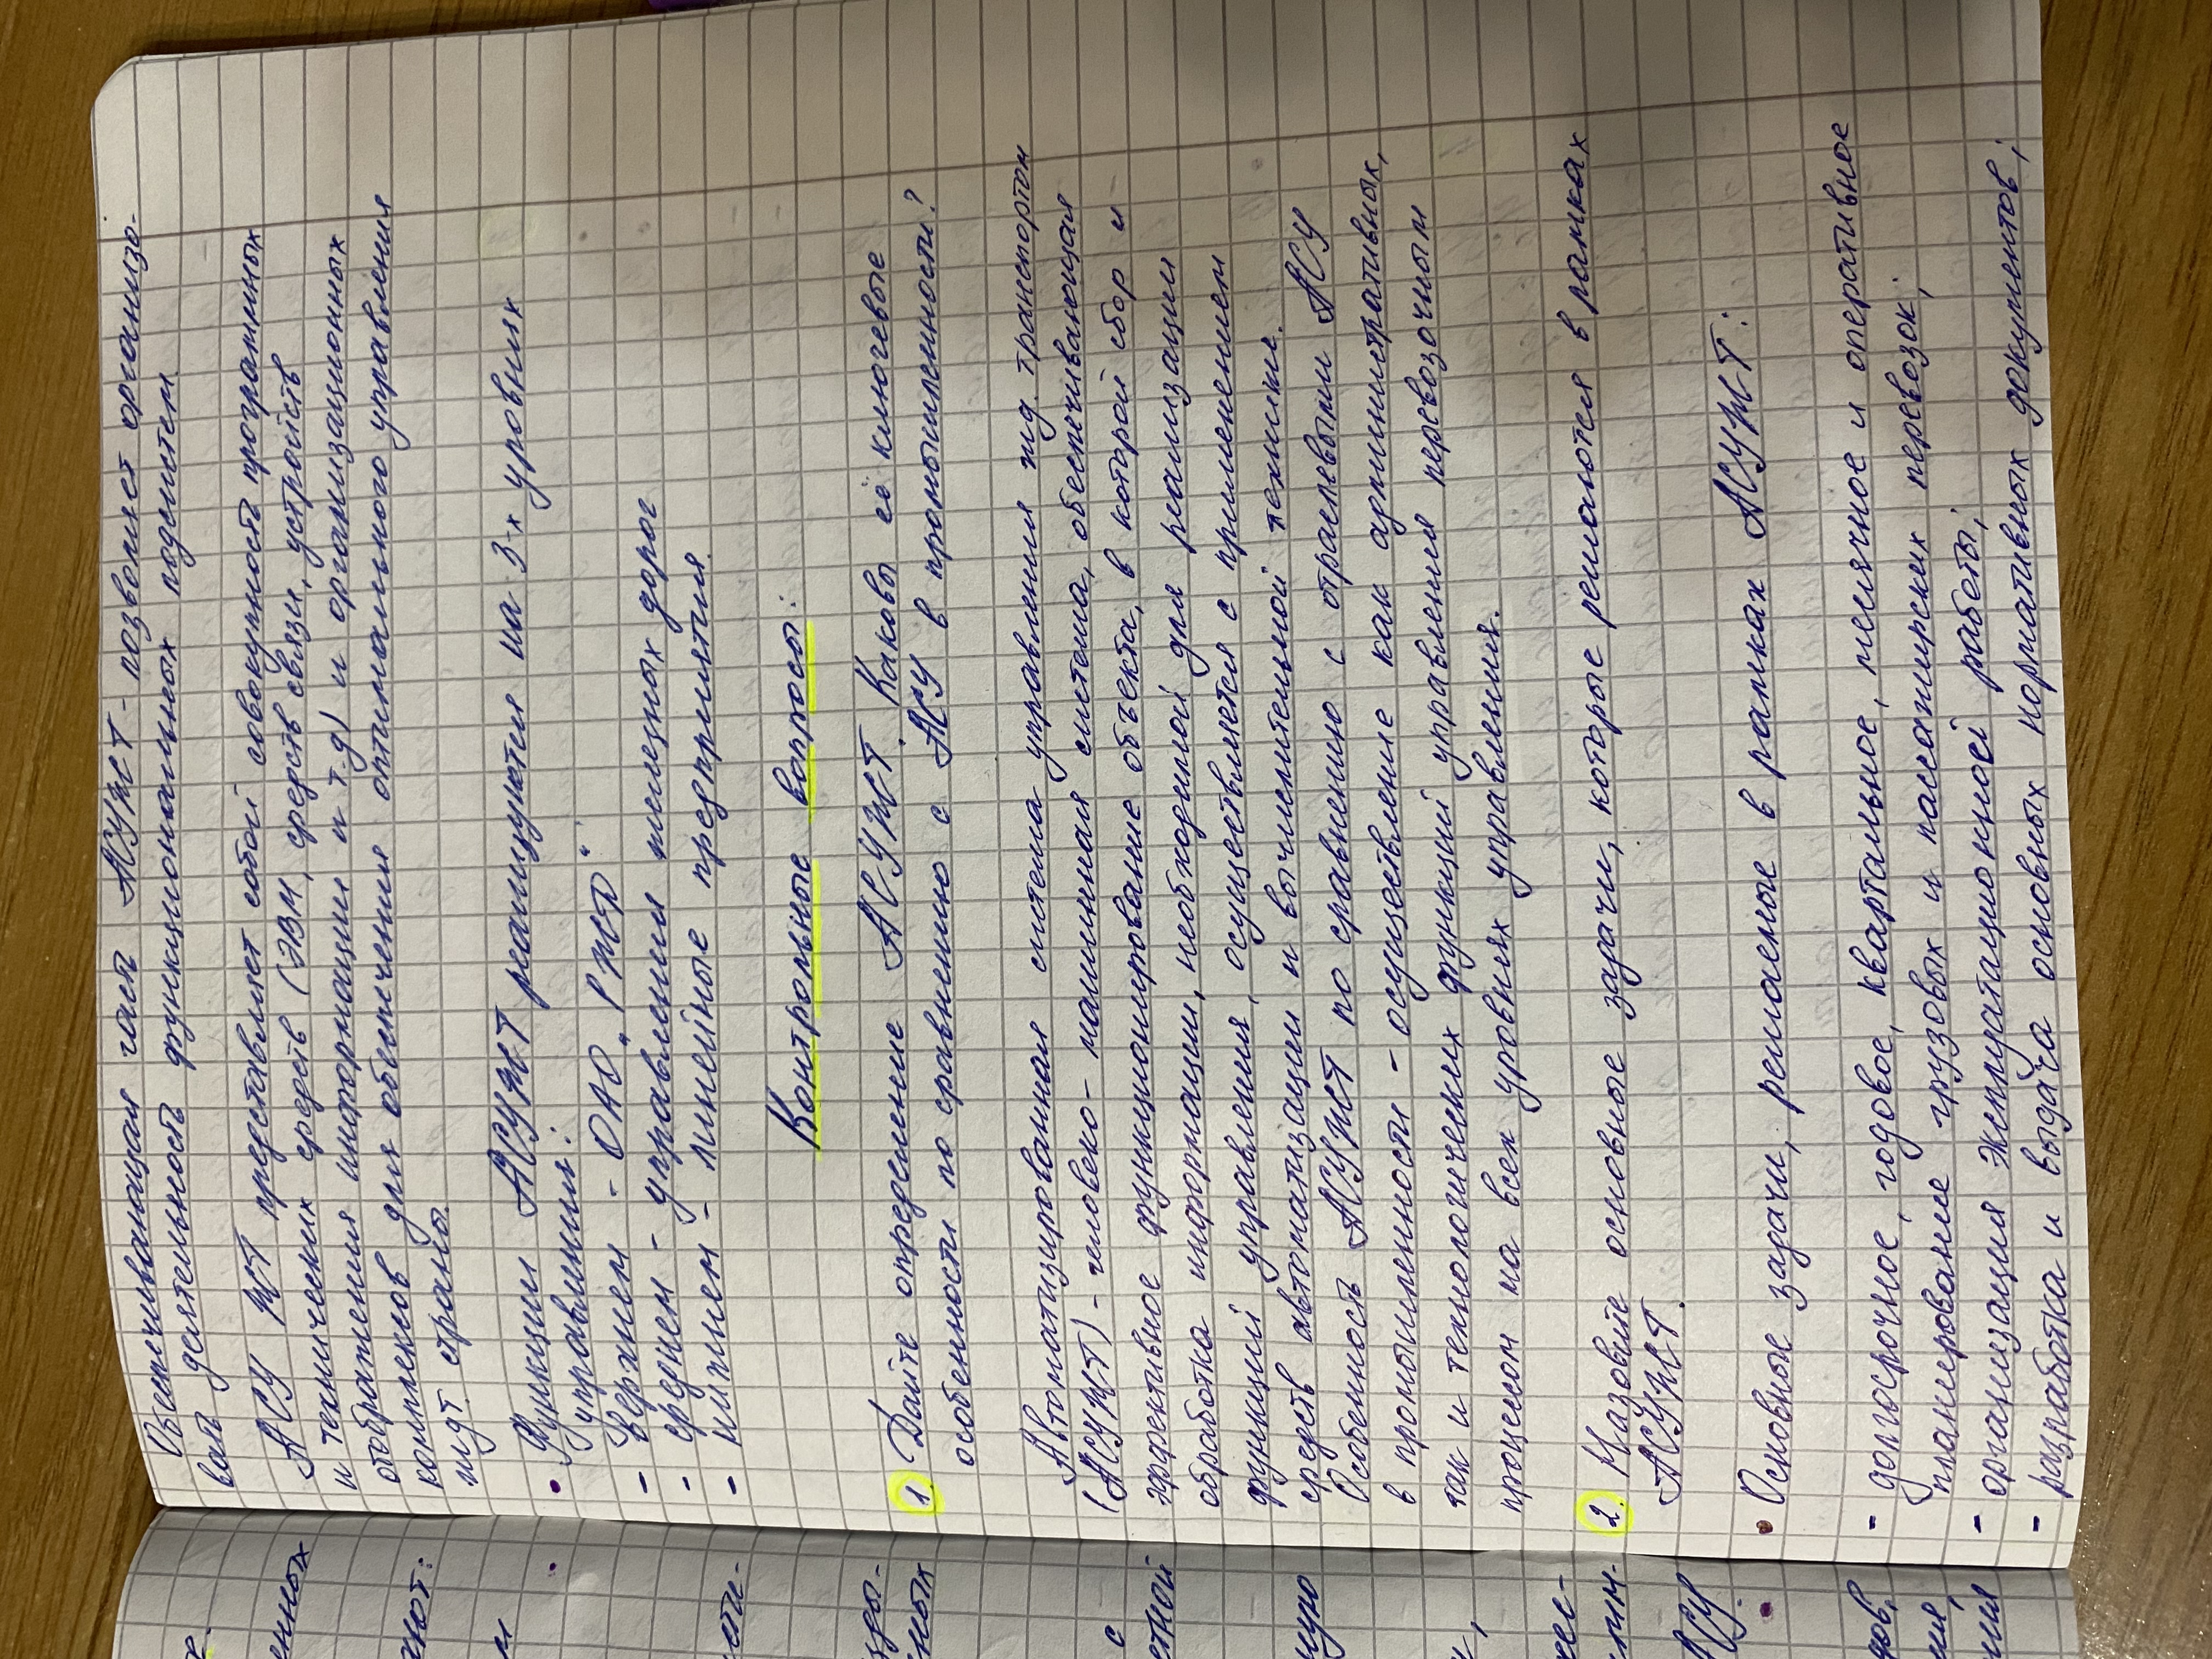 Обеспечивающая часть АСУЖТ - позволяет организо-
вать деятельность функциональных подсистем.
АСУ ЖТ представляет собой совокупность программных
и технических средств (ЭВМ, средств связи, устройств
отображения информации и т.д) и организационных
комплексов для обеспечения оптимального управления
жд. страны.
• Функции АСУЖТ реализуются на 3-х уровнях
управления:
- верхнем - ОАО „РЖД“
- среднем - управления железных дорог
- нижнем - линейные предприятия.
Контрольные вопросы:
1. Дайте определение АСУЖТ. Каковы её ключевые
особенности по сравнению с АСУ в промышленности?
Автоматизированная система управления жд. транспортом
(АСУЖТ) - человеко-машинная система, обеспечивающая
эффективное функционирование объекта, в которой сбор и
обработка информации, необходимой для реализации
функций управления, осуществляется с применением
средств автоматизации и вычислительной технике.
Особенность АСУЖТ по сравнению с отраслевыми АСУ
в промышленности - осуществление как административных,
так и технологических функций управления перевозочным
процессом на всех уровнях управления.
2. Назовите основные задачи, которые решаются в рамках
АСУЖТ.
• Основные задачи, решаемые в рамках АСУЖТ:
- долгосрочное, годовое, квартальное, месячное и оперативное
планирование грузовых и пассажирских перевозок;
- организация эксплуатационной работы;
- разработка и выдача основных нормативных документов;